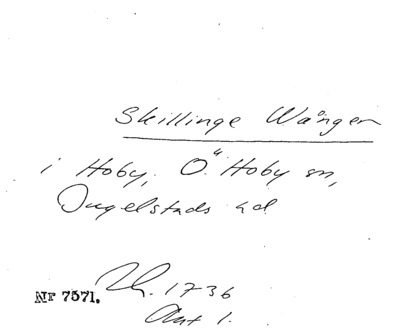 Skillinge Wången
i Hoby, Ö. Hoby sn,
Ingelstads hd
Nr 7571.
Lh. 1736
Akt 1.